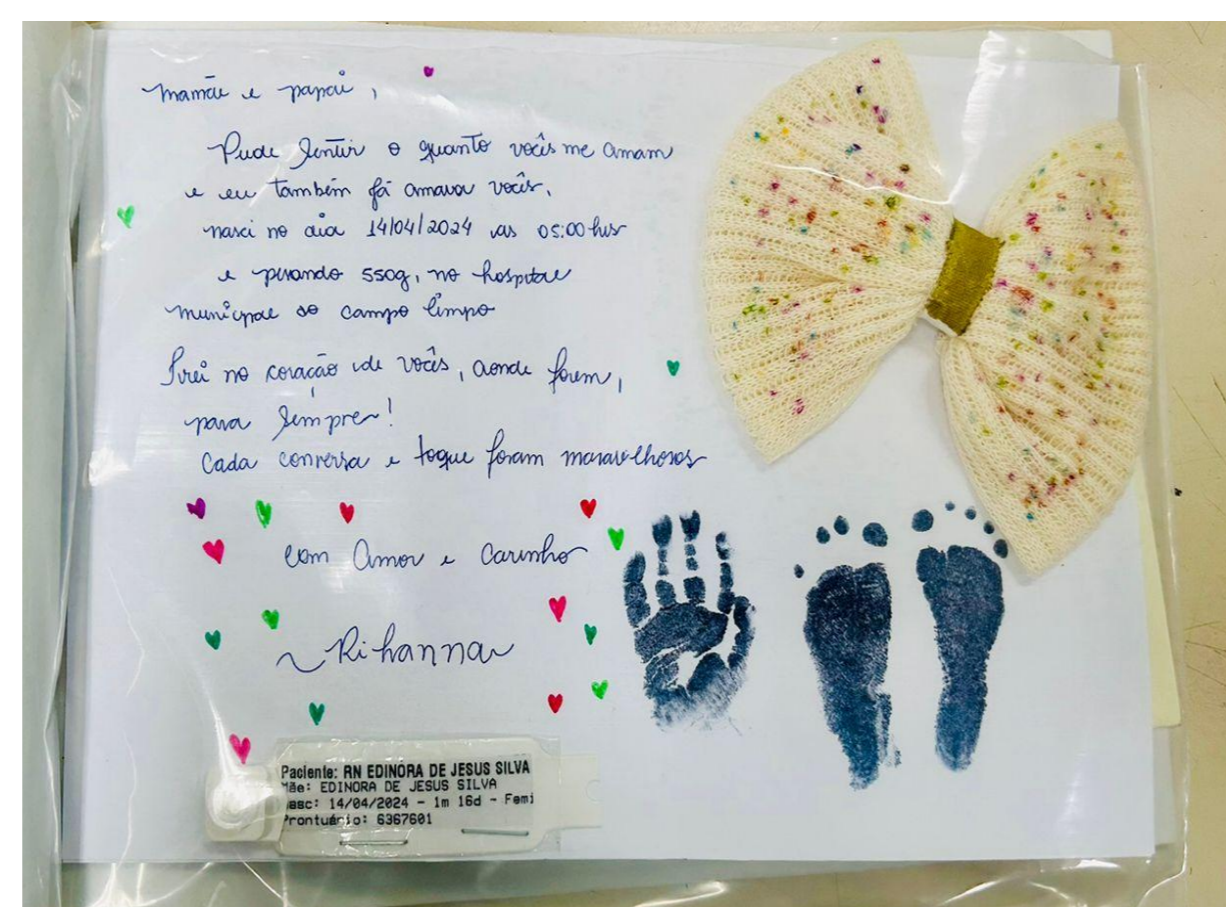 mamãe e papai,
Pude sentir o quanto vocês me amam
e eu também já amava vocês,
nasci no dia 14/04/2024 as 05:00 hrs
e pesando 550g, no hospital
municipal do campo limpo
Irei no coração de vocês, aonde forem,
para sempre!
Cada conversa e toque foram maravilhosos
com Amor e Carinho
~Rihanna
Paciente: RN EDINORA DE JESUS SILVA
Mãe: EDINORA DE JESUS SILVA
Nasc: 14/04/2024 - 1m 16d - Femi
Prontuário: 6367601